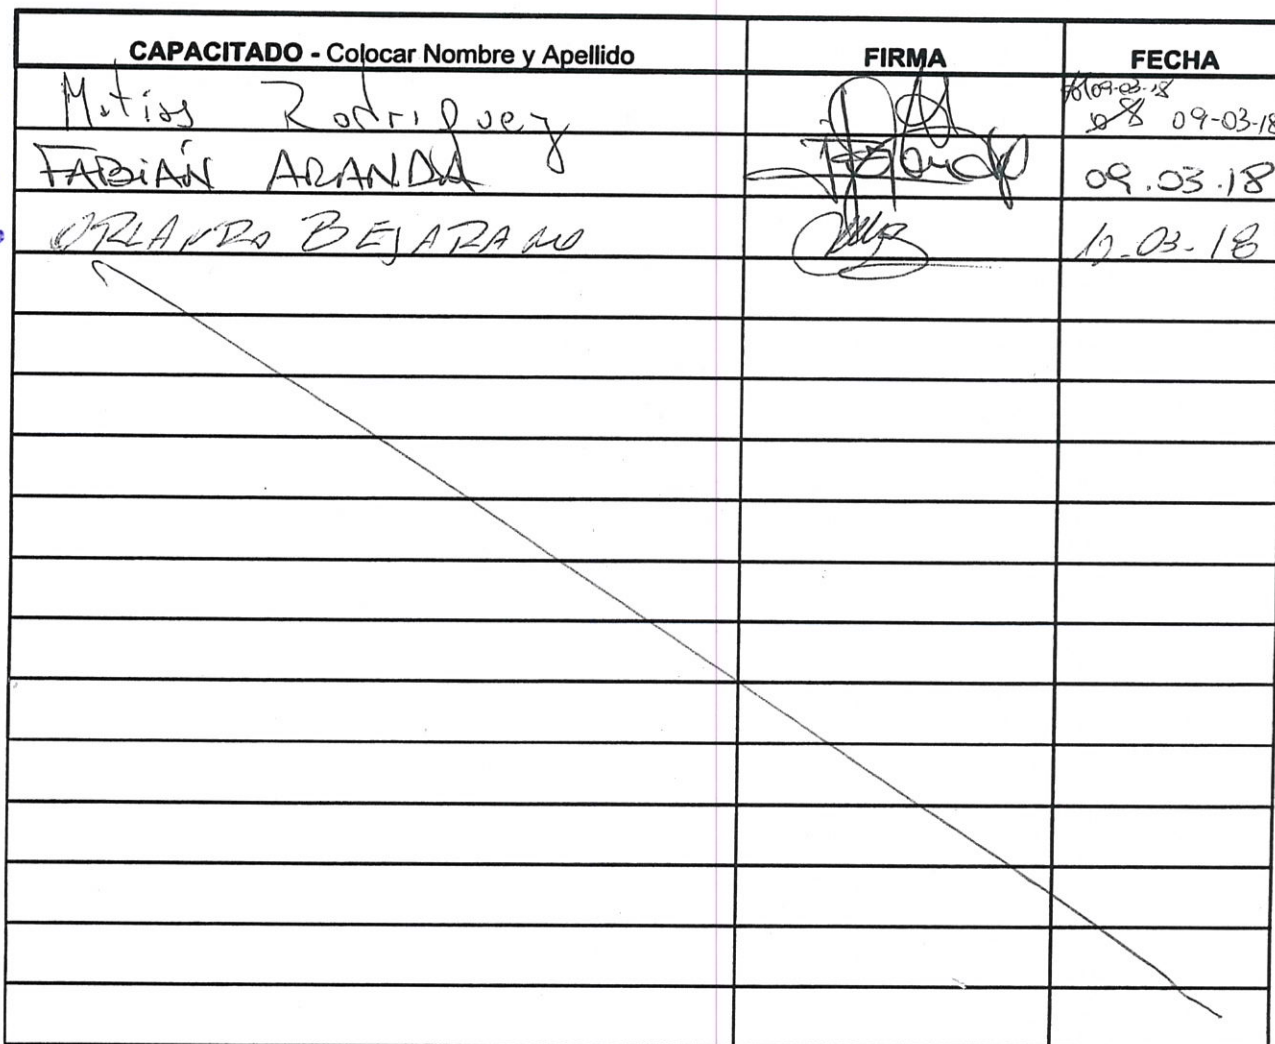 CAPACITADO - Colocar Nombre y Apellido FIRMA FECHA
Matias Rodriguez 09-03-18
09-03-18
FABIÁN ARANDA 09.03.18
ORLANDO BEJARANO 12-03-18